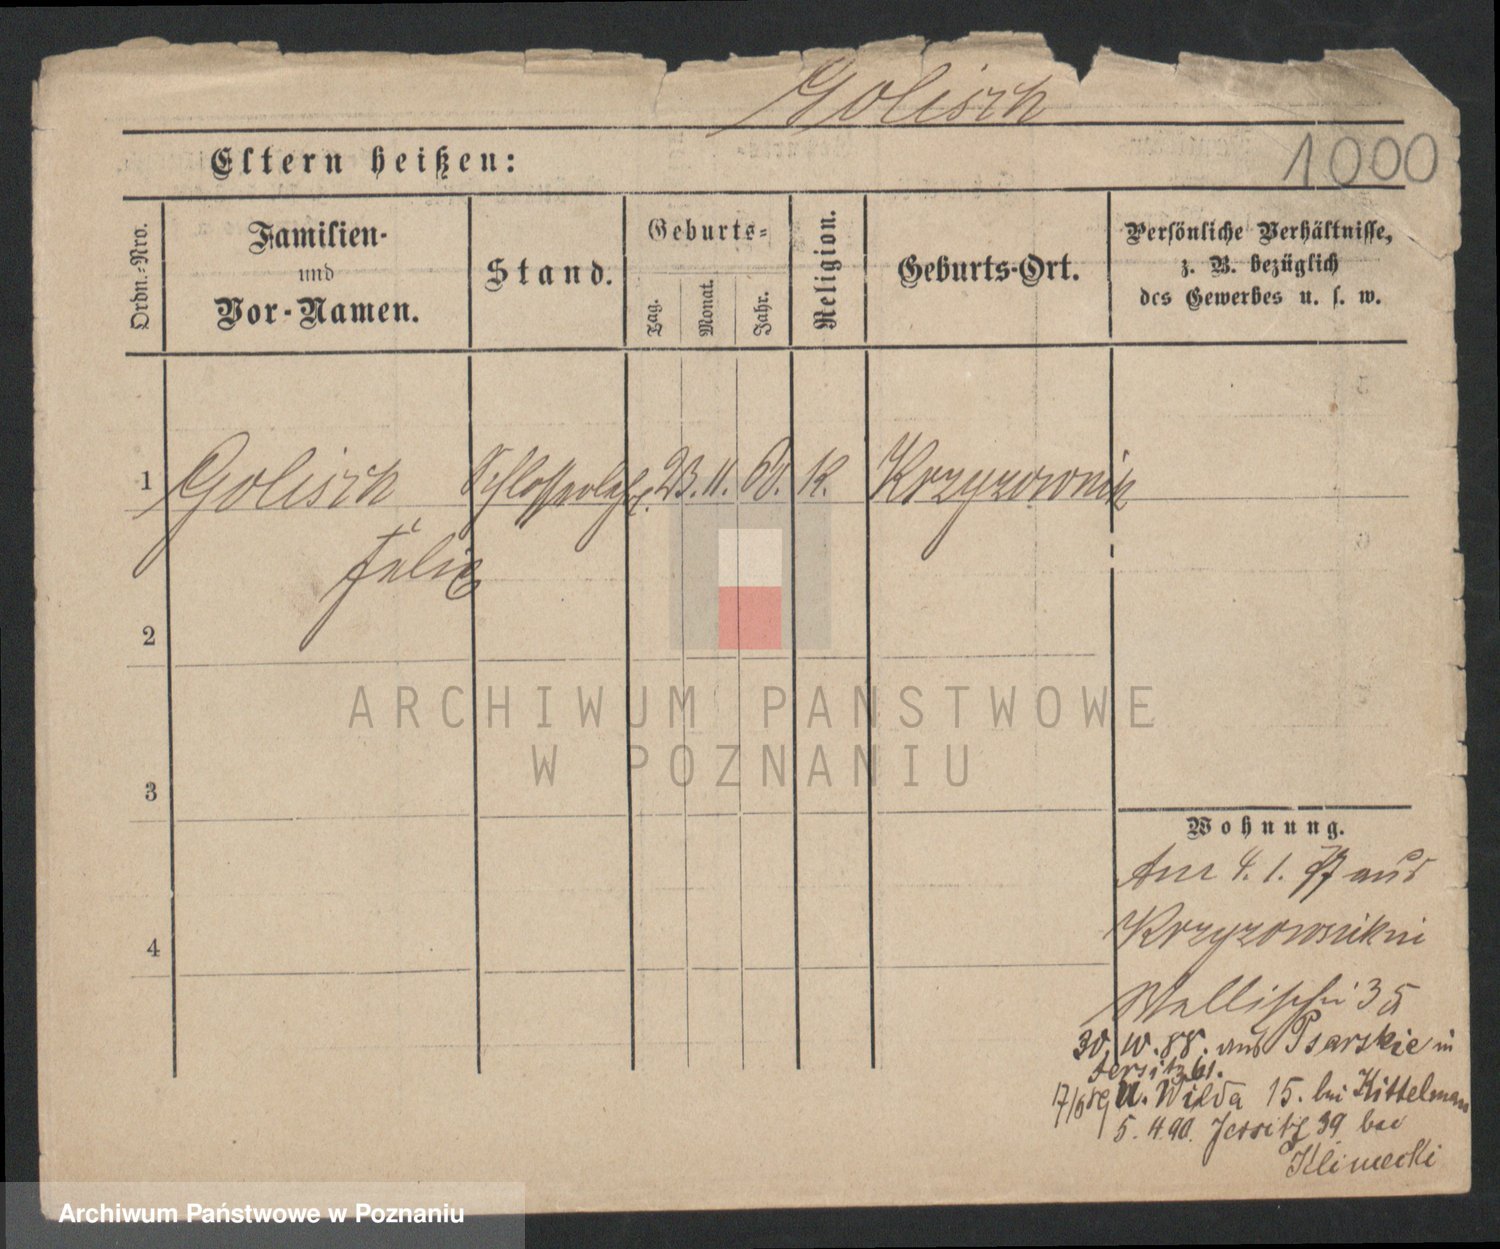 Golisch
1000
Eltern heißen:
Ordn.-Nro.
Familien-
und
Vor-Namen.
Stand.
Geburts-
Tag.
Monat.
Jahr.
Religion.
Geburts-Ort.
Persönliche Verhältnisse,
z. B. bezüglich
des Gewerbes u. s. w.
1 Golisch Schlosserlehrl. 23. 11. 60. K. Krzyzownik
Felix
2
3
4
Wohnung.
Am 4. 1. 77 aus
Krzyzownikni
Wallischei 35
30. 10. 88. aus Psarskie in
Jersitz 61.
17/6 89 U. Wilda 15. bei Kittelmann
5. 4. 90. Jersitz 39 bei
Klimecki
ARCHIWUM PAŃSTWOWE
W POZNANIU
Archiwum Państwowe w Poznaniu